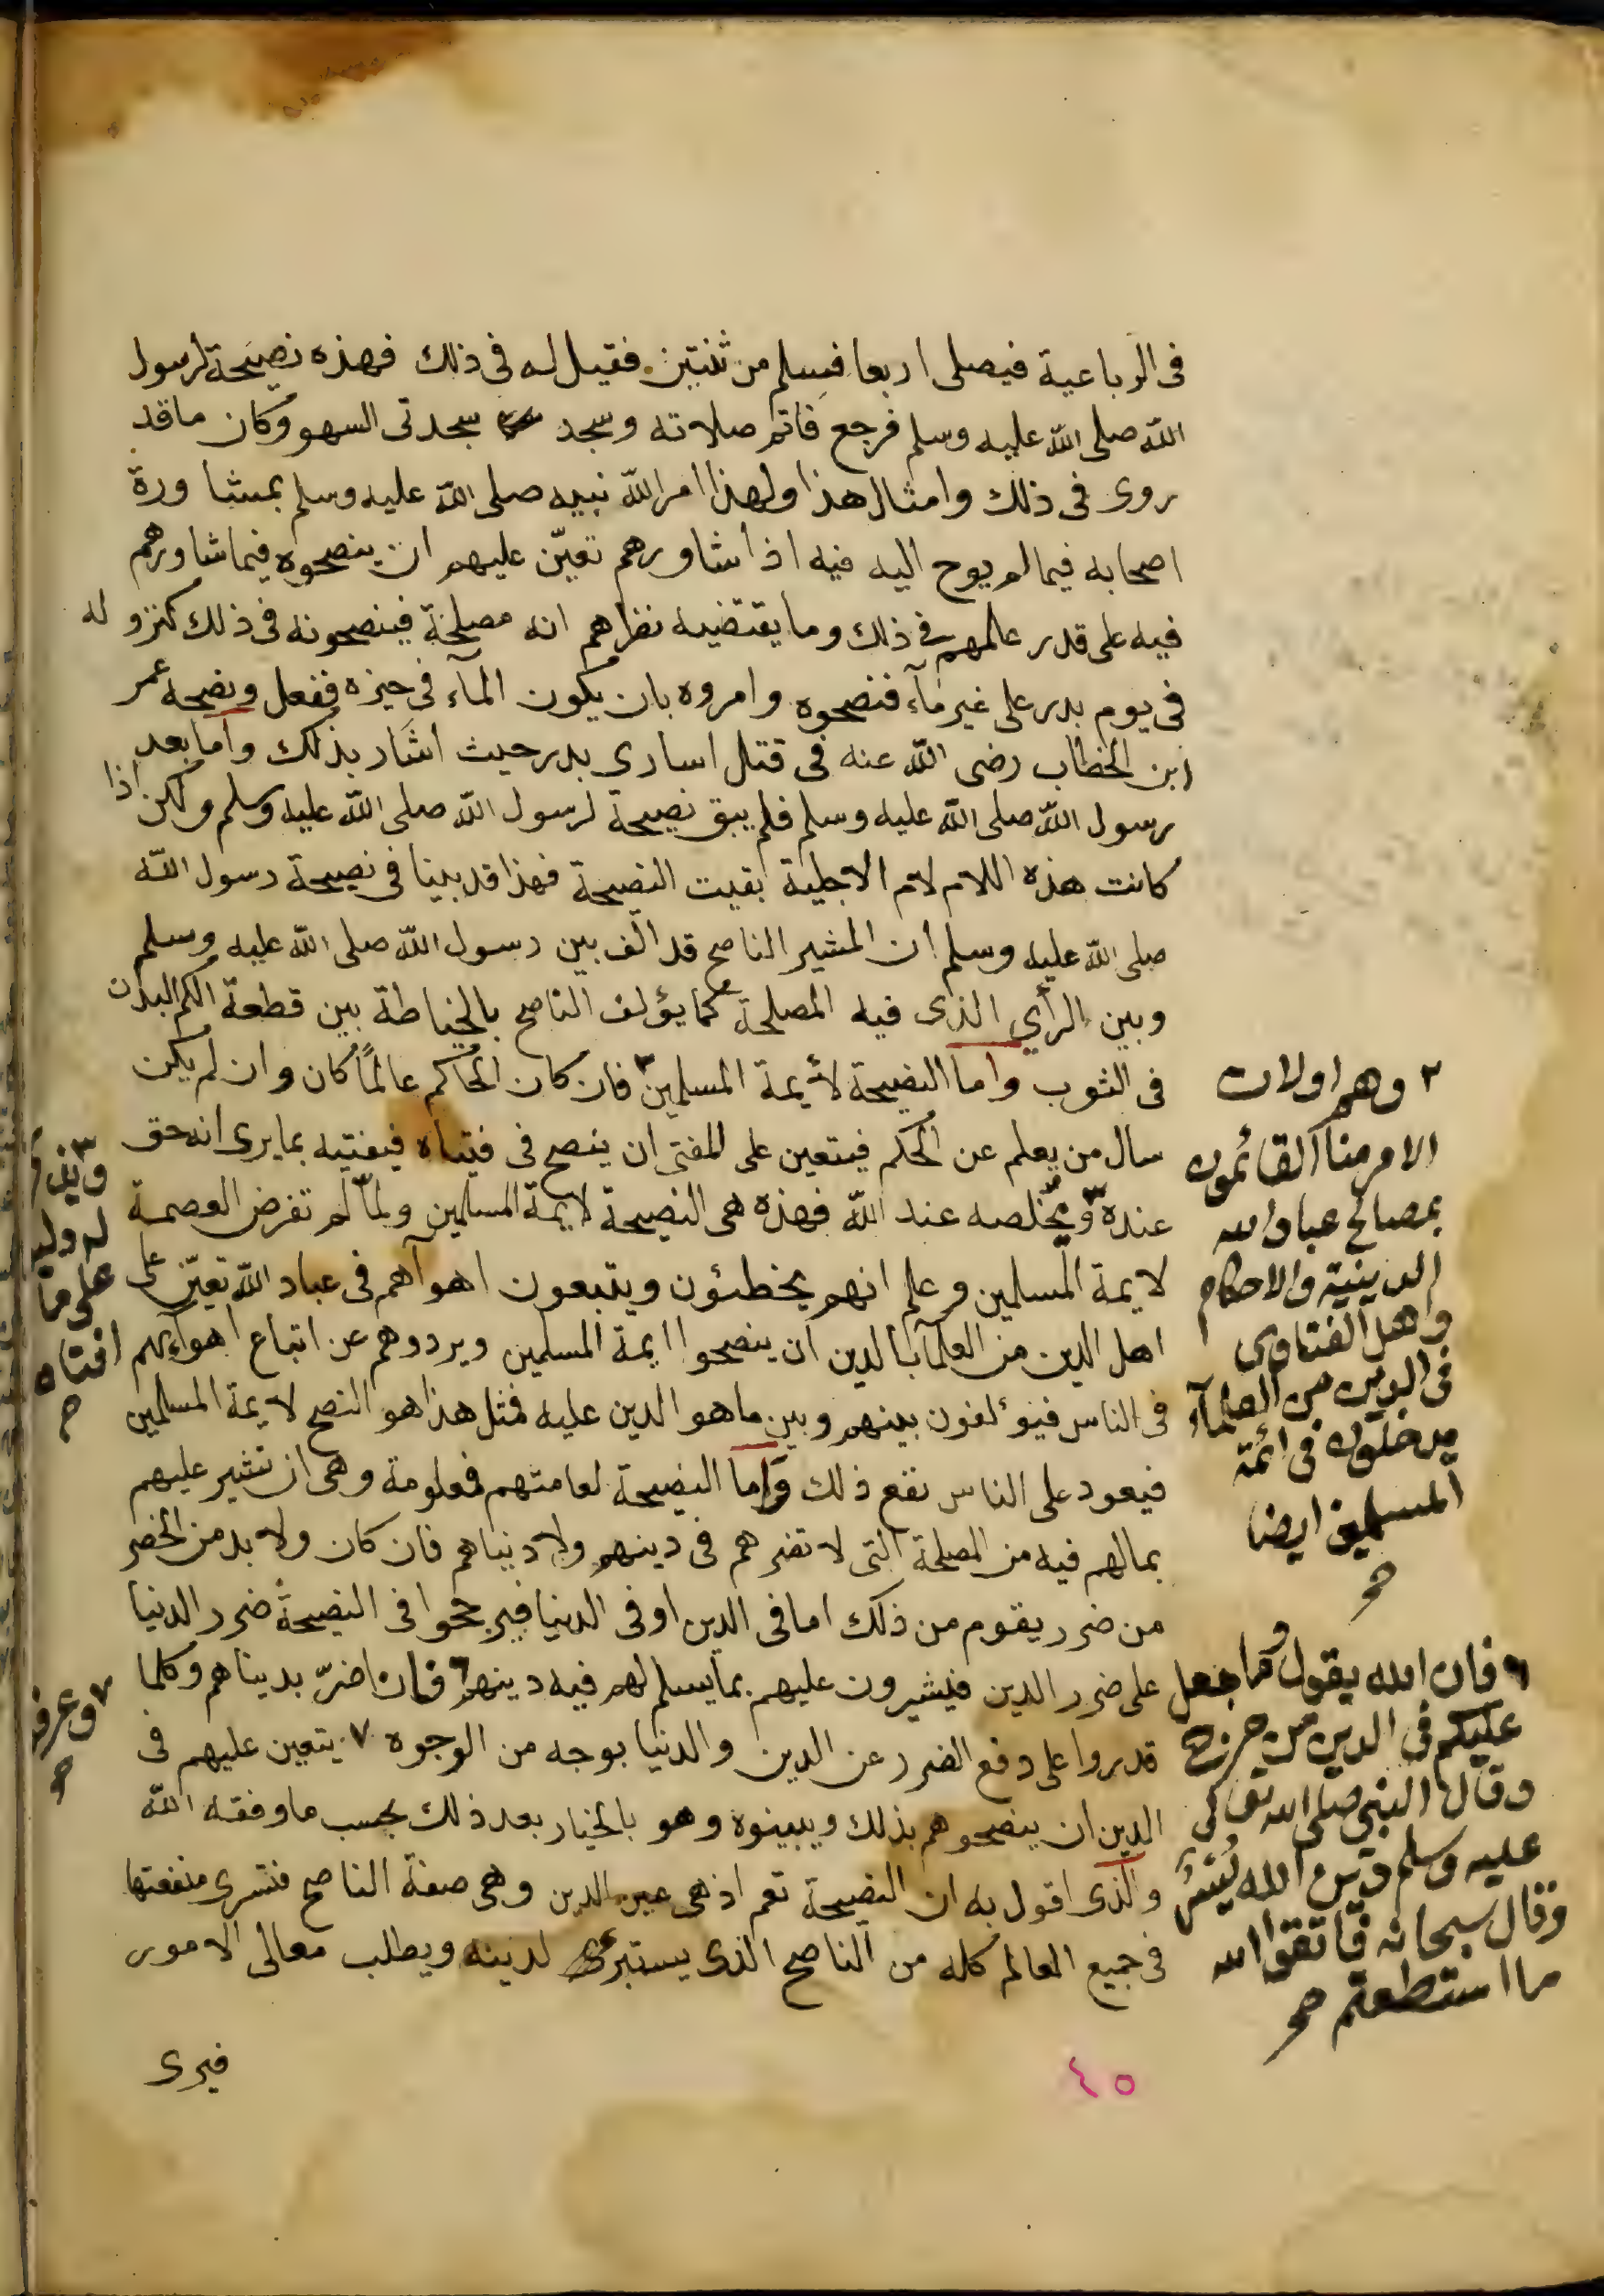 فى الرباعية فيصلى اربعا فسلم من ثنتين فقيل له فى ذلك فهذه نصيحة لرسول
الله صلى الله عليه وسلم فرجع فاتم صلاته وسجد سجدتى السهو وكان ما قد
روى فى ذلك وامثال هذا ولهذا امر الله نبيه صلى الله عليه وسلم بمشاورة
اصحابه فيما لم يوح اليه فيه اذا شاورهم تعيّن عليهم ان ينصحوه فيما شاورهم
فيه على قدر علمهم فى ذلك وما يقتضيه نظرهم انه مصلحة فينصحونه فى ذلك كنزوله
فى يوم بدر على غير مآء فنصحوه وامروه بان يكون المآء فى حيزه ففعل ونصحه عمر
ابن الخطاب رضى الله عنه فى قتل اسارى بدر حيث اشار بذلك واما بعد
رسول الله صلى الله عليه وسلم فلم يبق نصيحة لرسول الله صلى الله عليه وسلم ولكن اذا
كانت هذه اللام لام الاجلية بقيت النصيحة فهذا قد بينا فى نصيحة رسول الله
صلى الله عليه وسلم ان المشير الناصح قد الّف بين رسول الله صلى الله عليه وسلم
وبين الرأي الذى فيه المصلحة كما يؤلف الناصح بالخياطة بين قطعة الكم البدن
فى الثوب واما النصيحة لأيمة المسلمين ٢ فان كان الحاكم عالمًا كان وان لم يكن
سال من يعلم عن الحكم فيتعين على المفتى ان ينصح فى فتياه فيفتيه بما يرى انه حق
عنده ٣ ويخلصه عند الله فهذه هى النصيحة لايمة المسلمين ولمّا لم تفرض العصمة
لايمة المسلمين وعلم انهم يخطئون ويتبعون اهوآهم فى عباد الله تعيّن على
اهل الدين من العلمآ بالدين ان ينصحوا ايمة المسلمين ويردوهم عن اتباع اهوآئهم
فى الناس فيؤلفون بينهم وبين ما هو الدين عليه فمثل هذا هو النصح لايمة المسلمين
فيعود على الناس نفع ذلك واما النصيحة لعامتهم فمعلومة وهى ان تشير عليهم
بما لهم فيه من المصلحة التى لا تضرهم فى دينهم ولا دنياهم فان كان ولا بد من الخضر
من ضرر يقوم من ذلك اما فى الدين او فى الدنيا فيرجحوا فى النصيحة ضرر الدنيا
على ضرر الدين فيشيرون عليهم بما يسلم لهم فيه دينهم ٦ فان اضرّ بدنياهم وكلما
قدروا على دفع الضرر عن الدين والدنيا بوجه من الوجوه ٧ يتعين عليهم فى
الدين ان ينصحوهم بذلك ويبينوه وهو بالخيار بعد ذلك بحسب ما وفقه الله
والذى اقول به ان النصيحة تعم اذ هى عين الدين وهى صفة الناصح فتسرى منفعتها
فى جميع العالم كله من الناصح الذى يستبرئ لدينه ويطلب معالى الامور
فيرى
٤٥
٢ وهم اولات
الامر منا القائمون
بمصالح عباد الله
الدينية والاحكام
واهل الفتاوى
فى الدين من العلمآء
يدخلون فى ائمة
المسلمين ايضا
صح
٦ فان الله يقول وما جعل
عليكم فى الدين من حرج
وقال النبى صلى الله تعالى
عليه وسلم دين الله يُسْرٌ
وقال سبحانه فاتقوا الله
ما استطعتم صح
على
افتاه
صح
٧ وعرف
صح